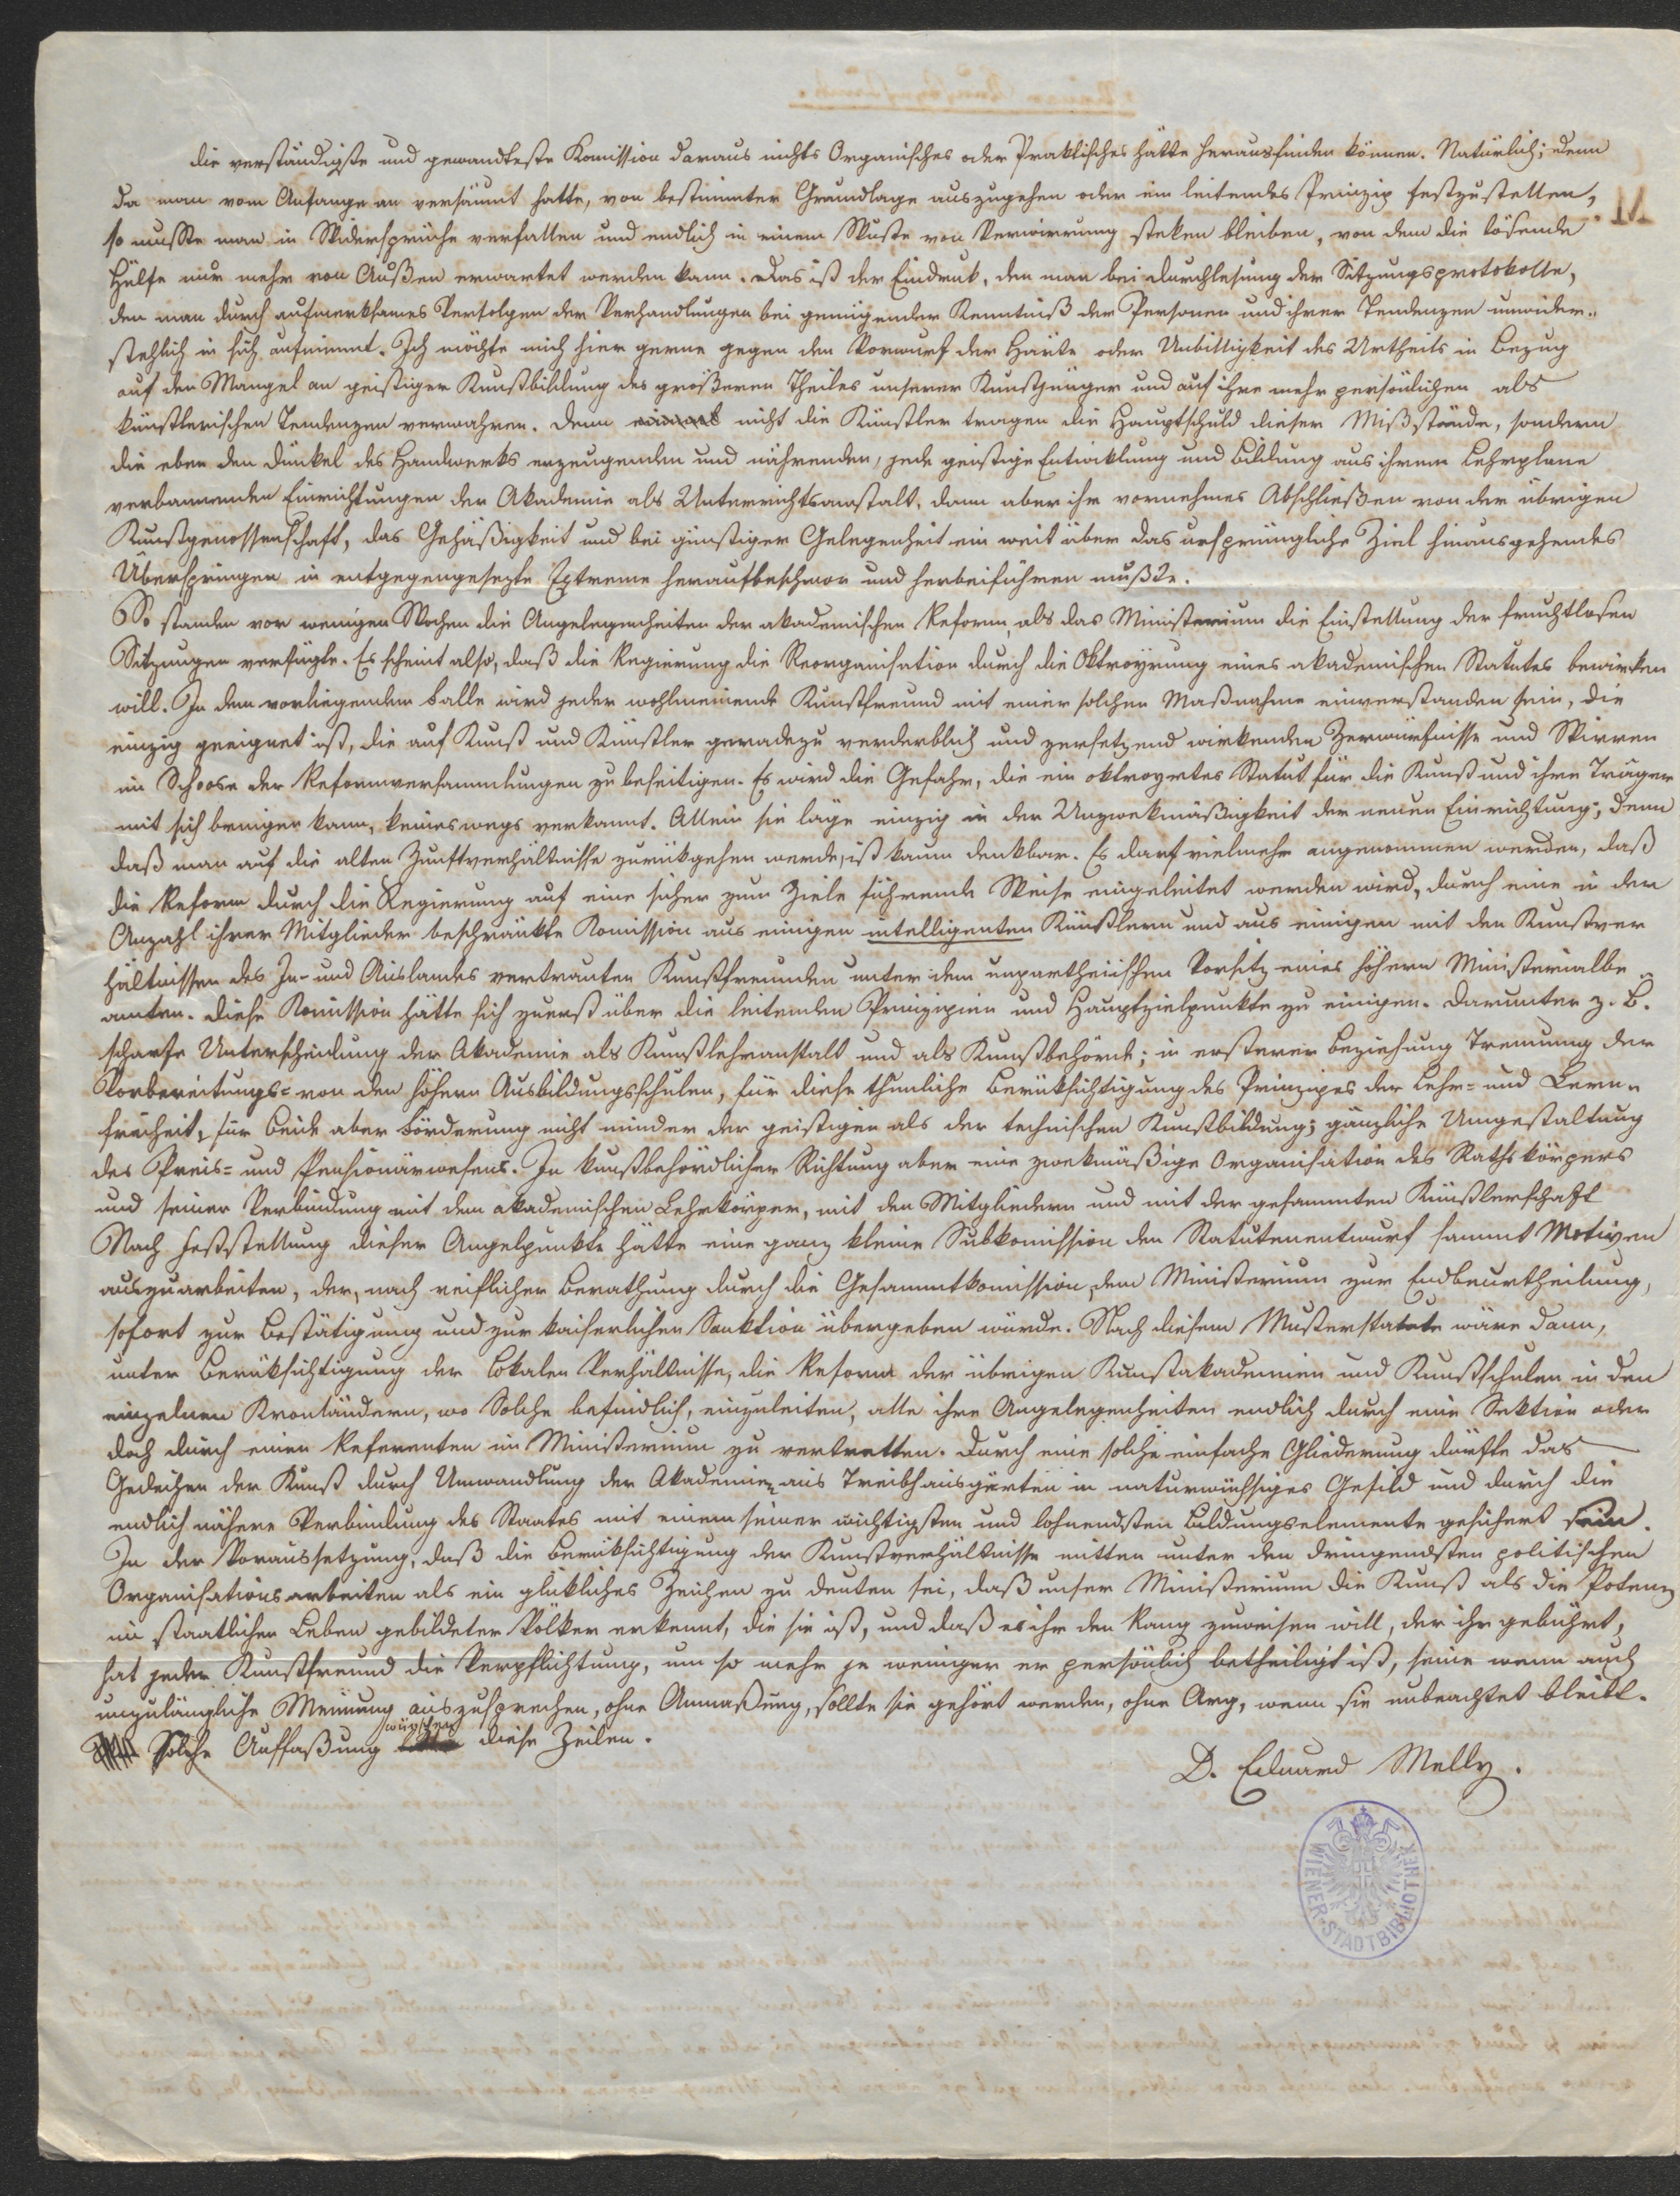 die verständigste und gewandteste Komission daraus nichts Organisches oder Praktisches hätte herausfinden können. Natürlich; denn
da man vom Anfange an versäumt hatte, von bestimmter Grundlage auszugehen oder ein leitendes Prinzip festzustellen,
so mußte man in Widersprüche verfallen und endlich in einem Wuste von Verwirrung steken bleiben, von dem die lösende
Hülfe nur mehr von Außen erwartet werden kann. Das ist der Eindruk, den man bei Durchlesung der Sitzungsprotokolle,
den man durch aufmerksames Verfolgen der Verhandlungen bei genügender Kenntniß der Personen und ihrer Tendenzen unwider-
stehlich in sich aufnimmt. Ich möchte mich hier gerne gegen den Vorwurf der Härte oder Unbilligkeit des Urtheils in Bezug
auf den Mangel an geistiger Kunstbildung des größeren Theiles unserer Kunstjünger und auf ihre mehr persönlichen als
künstlerischen Tendenzen verwahren. Denn nicht die Künstler tragen die Hauptschuld dieser Mißstände, sondern
die eben den Dünkel des Handwerks erzeugenden und nährenden, jede geistige Entwiklung und Bildung aus ihrem Lehrplane
verbannenden Einrichtungen der Akademie als Unterrichtsanstalt, dann aber ihr vornehmes Abschließen von der übrigen
Kunstgenossenschaft, das Gehäßigkeit und bei günstiger Gelegenheit ein weit über das ursprüngliche Ziel hinausgehendes
Überspringen in entgegengesezte Extreme heraufbeschwor und herbeiführen mußte.
So standen vor wenigen Wochen die Angelegenheiten der akademischen Reform, als das Ministerium die Einstellung der fruchtlosen
Sitzungen verfügte. Es scheint also, daß die Regierung die Reorganisation durch die Oktroyrung eines akademischen Statutes bewirken
will. In dem vorliegenden Falle wird jeder wohlmeinende Kunstfreund mit einer solchen Maßnahme einverstanden sein, die
einzig geeignet ist, die auf Kunst und Künstler geradezu verderblich und zersetzend wirkenden Zerwürfnisse und Wirren
im Schoose der Reformversammlungen zu beseitigen. Es wird die Gefahr, die ein oktroyrtes Statut für die Kunst und ihre Träger
mit sich bringen kann, keineswegs verkannt. Allein sie läge einzig in der Unzwekmäßigkeit der neuen Einrichtung; denn
daß man auf die alten Zunftverhältnisse zurükgehen werde, ist kaum denkbar. Es darf vielmehr angenommen werden, daß
die Reform durch die Regierung auf eine sicher zum Ziele führende Weise eingeleitet werden wird, durch eine in der
Anzahl ihrer Mitglieder beschränkte Komission aus einigen intelligenten Künstlern und aus einigen mit den Kunstver
hältnissen des In- und Auslandes vertrauten Kunstfreunden unter dem unpartheiischen Vorsitz eines höhern Ministerialbe
amten. Diese Komission hätte sich zuerst über die leitenden Prinzipien und Hauptzielpunkte zu einigen. Darunter z. B.
scharfe Unterscheidung der Akademie als Kunstlehranstalt und als Kunstbehörde; in ersterer Beziehung Trennung der
Vorbereitungs- von den höhern Ausbildungsschulen, für diese thunliche Berüksichtigung des Prinzipes der Lehr- und Lern-
freiheit, für beide aber Förderung nicht minder der geistigen als der technischen Kunstbildung; gänzliche Umgestaltung
des Preis- und Pensionärwesens. In kunstbehördlicher Richtung aber eine zwekmäßige Organisation des Rathskörpers
und seiner Verbindung mit dem akademischen Lehrkörper, mit den Mitgliedern und mit der gesammten Künstlerschaft
Nach Feststellung dieser Angelpunkte hätte eine ganz kleine Subkomission den Statutenentwurf sammt Motiven
auszuarbeiten, der, nach reiflicher Berathung durch die Gesammtkomission, dem Ministerium zur Endbeurtheilung,
sofort zur Bestätigung und zur kaiserlichen Sanktion übergeben würde. Nach diesem Musterstatute wäre dann,
unter Berüksichtigung der lokalen Verhältnisse, die Reform der übrigen Kunstakademien und Kunstschulen in den
einzelnen Kronländern, wo solche befindlich, einzuleiten, alle ihre Angelegenheiten endlich durch eine Sektion oder
doch durch einen Referenten im Ministerium zu vertretten. Durch eine solche einfache Gliederung dürfte das
Gedeihen der Kunst durch Umwandlung der Akademien aus Treibhausgärten in naturwüchsiges Gefild und durch die
endlich nähere Verbindung des Staates mit einem seiner wichtigsten und lohnendsten Bildungselemente gesichert sein.
In der Voraussetzung, daß die Berüksichtigung der Kunstverhältnisse mitten unter den dringendsten politischen
Organisationsarbeiten als ein glükliches Zeichen zu deuten sei, daß unser Ministerium die Kunst als die Potenz
im staatlichen Leben gebildeter Völker erkennt, die sie ist, und daß es ihr den Rang zuweisen will, der ihr gebührt,
hat jeder Kunstfreund die Verpflichtung, um so mehr je weniger er persönlich betheiligt ist, seine wenn auch
unzulängliche Meinung auszusprechen, ohne Anmaßung, sollte sie gehört werden, ohne Arg, wenn sie unbeachtet bleibt.
Solche Auffaßung wünschen diese Zeilen.
D. Eduard Melly.
WIENER STADTBIBLIOTHEK